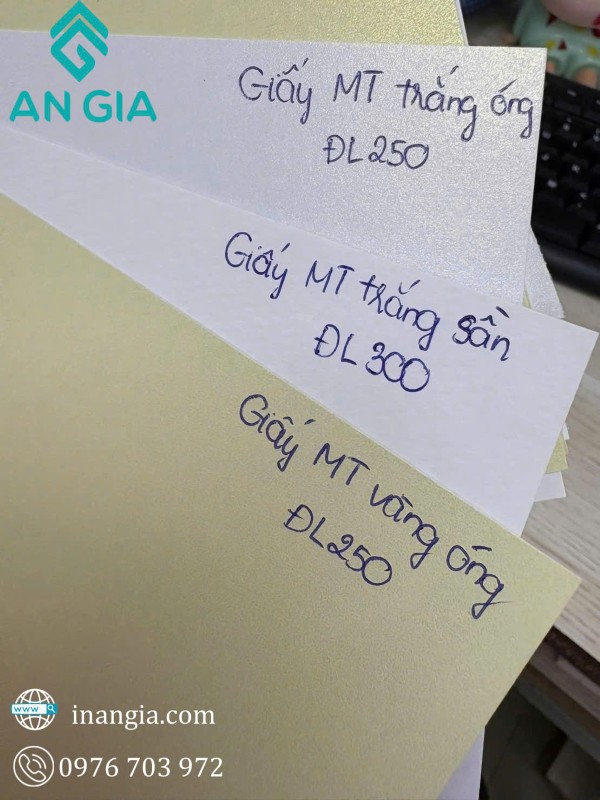 AN GIA
Giấy MT trắng óng
ĐL250
Giấy MT trắng sần
ĐL300
Giấy MT vàng óng
ĐL250
www
inangia.com
0976 703 972